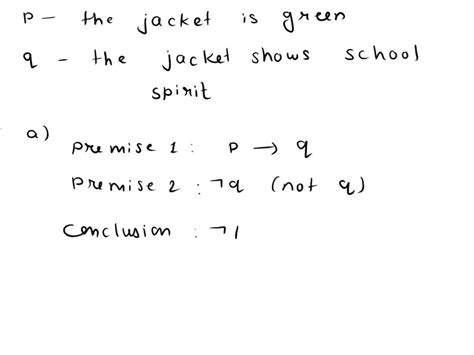 p - the jacket is green
q - the jacket shows school
spirit
a)
premise 1 : p → q
premise 2 : ¬q (not q)
Conclusion : ¬